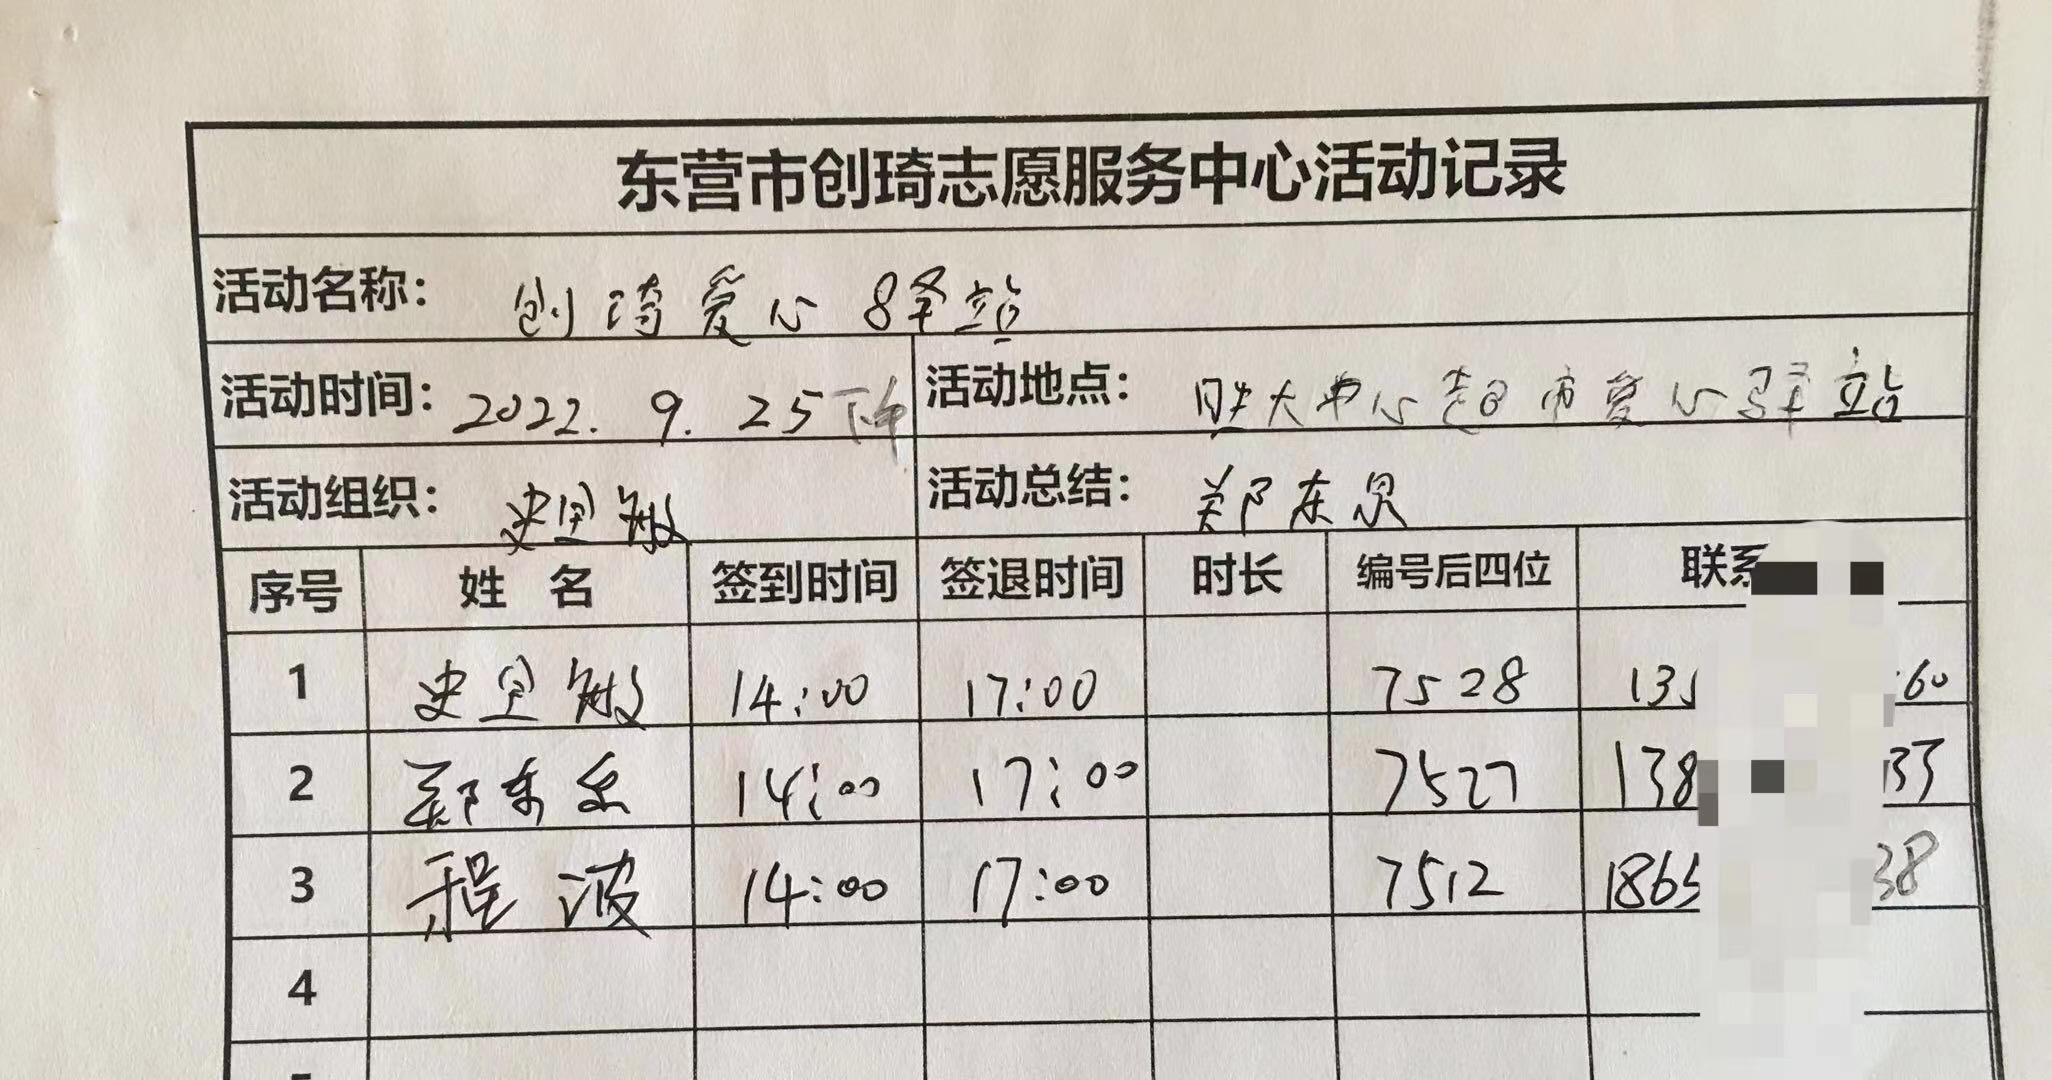 东营市创琦志愿服务中心活动记录
活动名称： 创琦爱心驿站
活动时间： 2022. 9. 25下午 活动地点： 胜大中心超市爱心驿站
活动组织： 史 敏 活动总结： 郑东泉
序号 姓 名 签到时间 签退时间 时长 编号后四位 联系
1 史 敏 14:00 17:00 7528 135 60
2 郑东泉 14:00 17:00 7527 138 33
3 程波 14:00 17:00 7512 1865 38
4